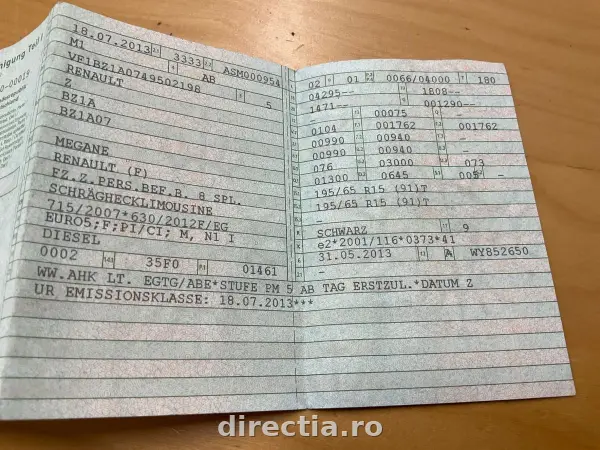 nigung Teil
0-00019
18.07.2013 3333 ASM000954
M1 AB
VF1BZ1A0749502198 5
RENAULT
Z
BZ1A
BZ1A07
MEGANE
RENAULT (F)
FZ.Z.PERS.BEF.B. 8 SPL.
SCHRÄGHECKLIMOUSINE
715/2007*630/2012F/EG
EURO5;F;PI/CI; M, N1 I
DIESEL
0002 35F0 01461
02 01 0066/04000 180
04295-- 1808--
1471-- 001290--
00075 -
0104 001762 001762
00990 00940
00990 00940 -
076 03000 073
01300 0645 005 -
195/65 R15 (91)T
195/65 R15 (91)T
-
SCHWARZ 9
e2*2001/116*0373*41
31.05.2013 A WY852650
-
WW.AHK LT. EGTG/ABE*STUFE PM 5 AB TAG ERSTZUL.*DATUM Z
UR EMISSIONSKLASSE: 18.07.2013***
directia.ro